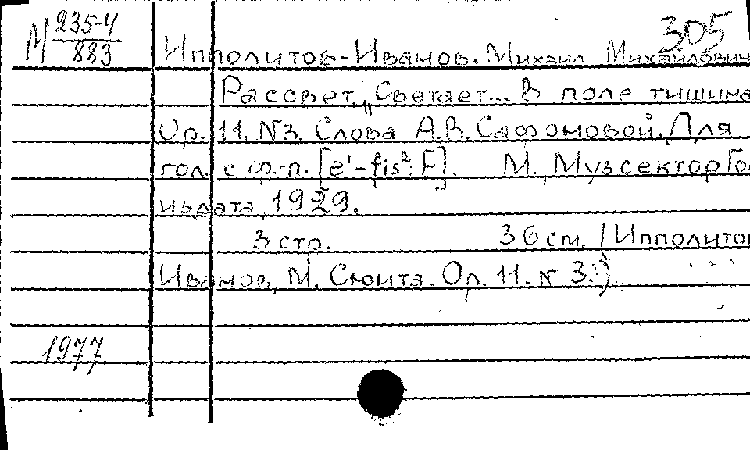 305
М 235-4
883
Ипполитов-Иванов. Михаил Михайлович
Рассвет. „Светает... В поле тишина
Ор. 11. №3. Слова А.В. Сафоновой. Для
гол. с ф.-п. [e¹-fis²; F]. М., Музсектор Гос
издата, 1929.
3 стр. 36 см. (Ипполитов
Иванов, М. Сюита. Ор. 11. № 3.)
1977